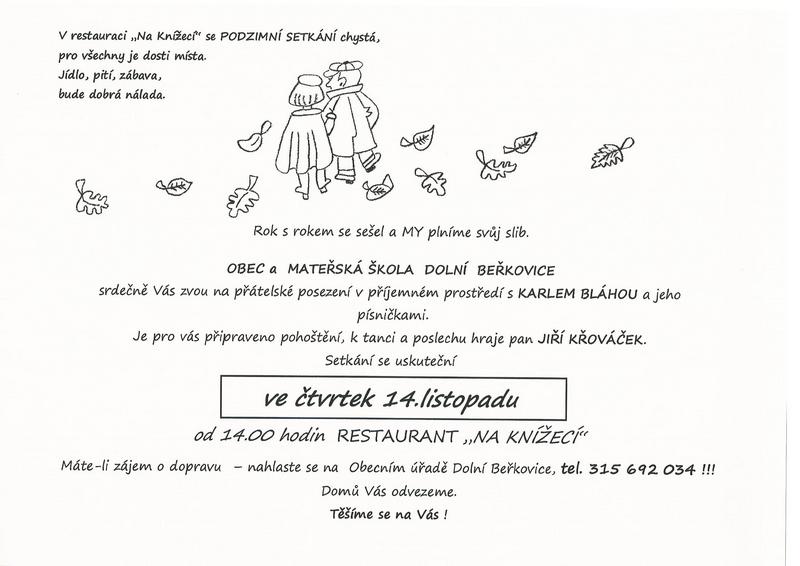 V restauraci „Na Knížecí“ se PODZIMNÍ SETKÁNÍ chystá,
pro všechny je dosti místa.
Jídlo, pití, zábava,
bude dobrá nálada.
Rok s rokem se sešel a MY plníme svůj slib.
OBEC a MATEŘSKÁ ŠKOLA DOLNÍ BEŘKOVICE
srdečně Vás zvou na přátelské posezení v příjemném prostředí s KARLEM BLÁHOU a jeho
písničkami.
Je pro vás připraveno pohoštění, k tanci a poslechu hraje pan JIŘÍ KŘOVÁČEK.
Setkání se uskuteční
ve čtvrtek 14.listopadu
od 14.00 hodin RESTAURANT „NA KNÍŽECÍ“
Máte-li zájem o dopravu – nahlaste se na Obecním úřadě Dolní Beřkovice, tel. 315 692 034 !!!
Domů Vás odvezeme.
Těšíme se na Vás !